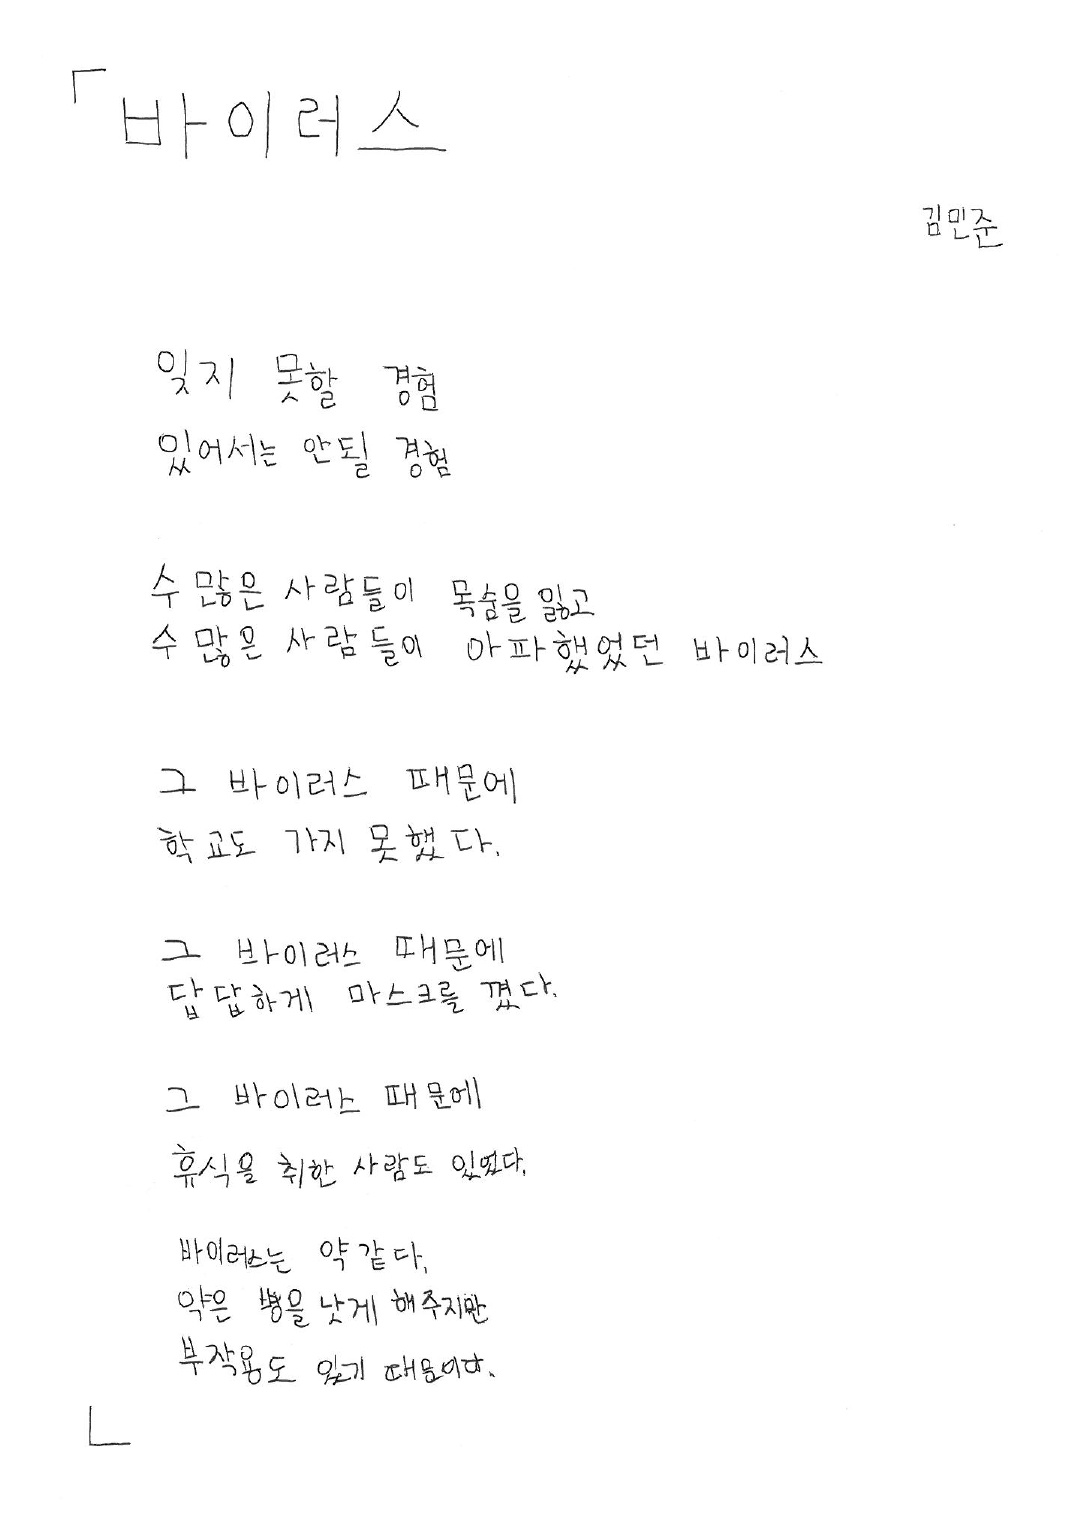 바이러스
김민준
잊지 못할 경험
있어서는 안될 경험
수 많은 사람들이 목숨을 잃고
수 많은 사람들이 아파했었던 바이러스
그 바이러스 때문에
학교도 가지 못했다.
그 바이러스 때문에
답답하게 마스크를 꼈다.
그 바이러스 때문에
휴식을 취한 사람도 있었다.
바이러스는 약 같다.
약은 병을 낫게 해주지만
부작용도 있기 때문이다.